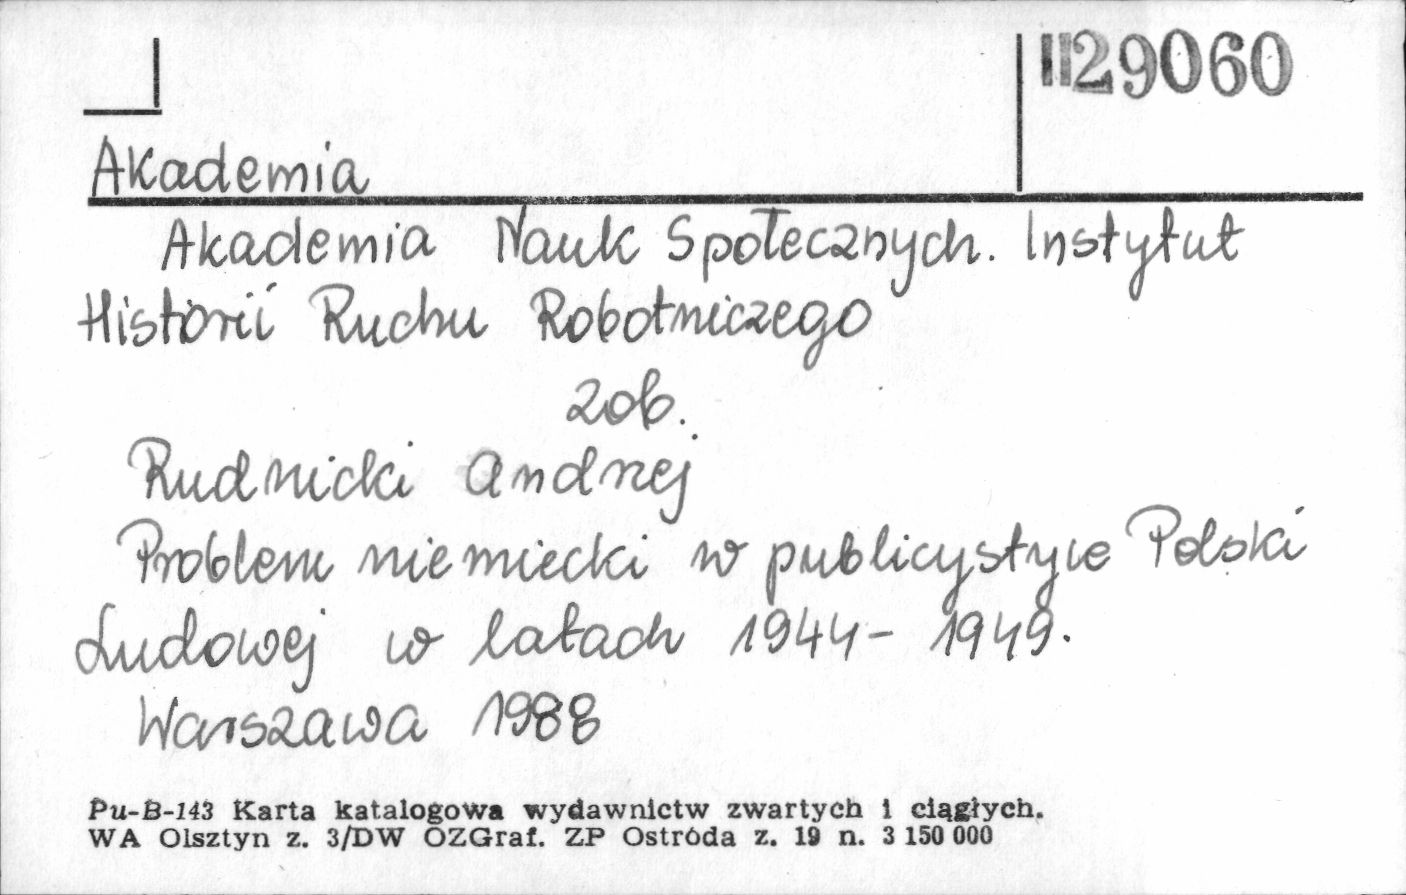 II 29060
Akademia
Akademia Nauk Społecznych. Instytut
Historii Ruchu Robotniczego
zob.
Rudnicki Andrzej
Problem niemiecki w publicystyce Polski
Ludowej w latach 1944-1949.
Warszawa 1988
Pu-B-143 Karta katalogowa wydawnictw zwartych i ciągłych.
WA Olsztyn z. 3/DW OZGraf. ZP Ostróda z. 19 n. 3 150 000